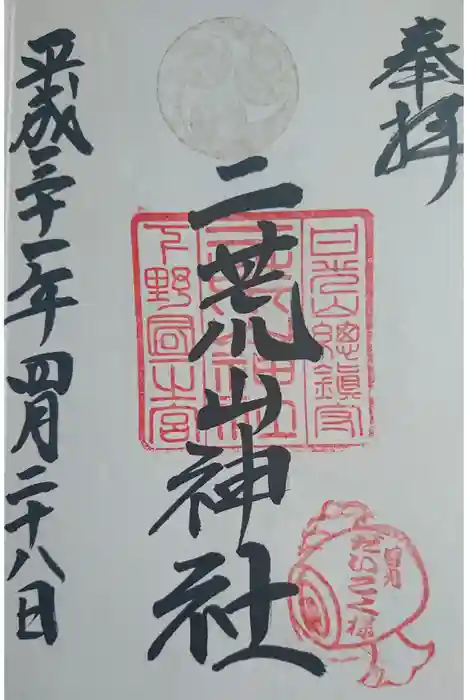 奉拝
二荒山神社
日光山總鎮守
二荒山神社
下野國一之宮
平成三十一年四月二十八日